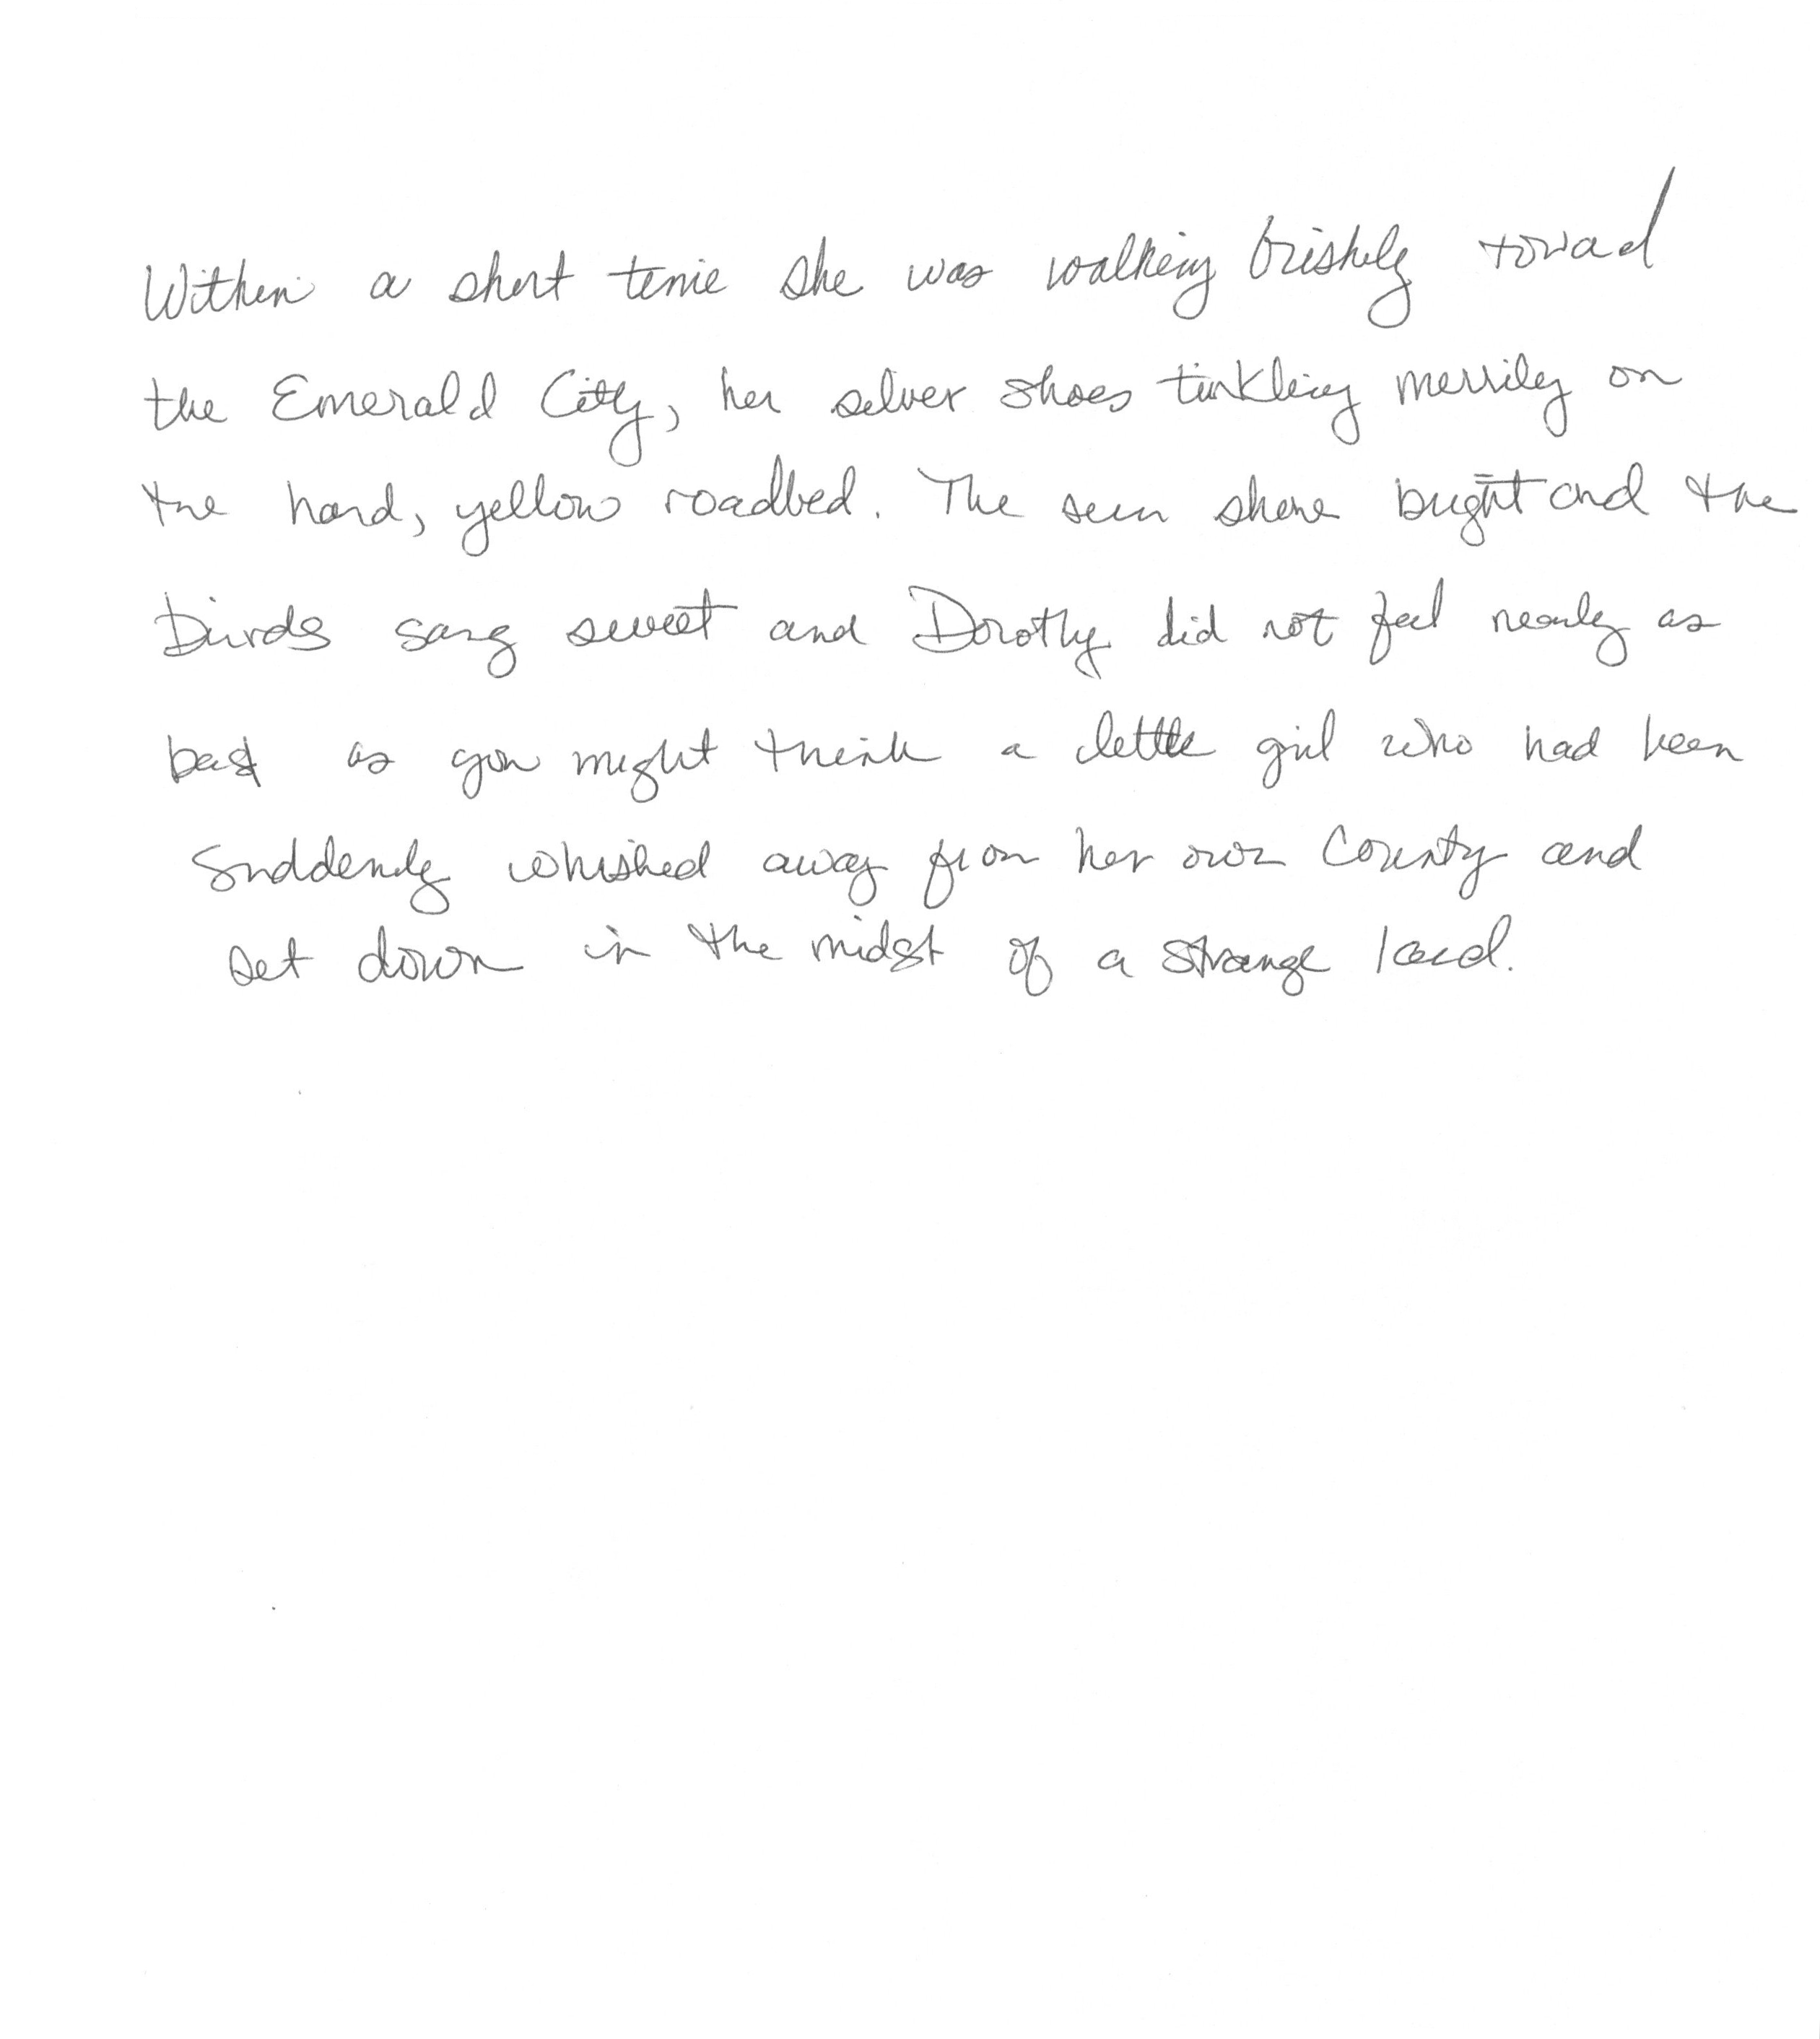 Within a short time she was walking briskly toward
the Emerald City, her silver shoes tinkling merrily on
the hard, yellow roadbed. The sun shone bright and the
birds sang sweet and Dorothy did not feel nearly as
bad as you might think a little girl who had been
suddenly whisked away from her own County and
set down in the midst of a strange land.